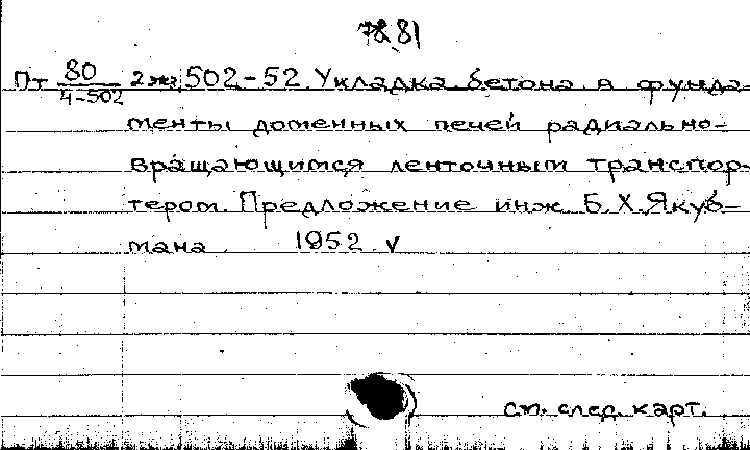 78.81
Пт 80/4-502 2 экз 502-52. Укладка бетона в фунда-
менты доменных печей радиально-
вращающимся ленточным транспор-
тером. Предложение инж. Б.Х. Якуб-
мана 1952 v
см. след. карт.